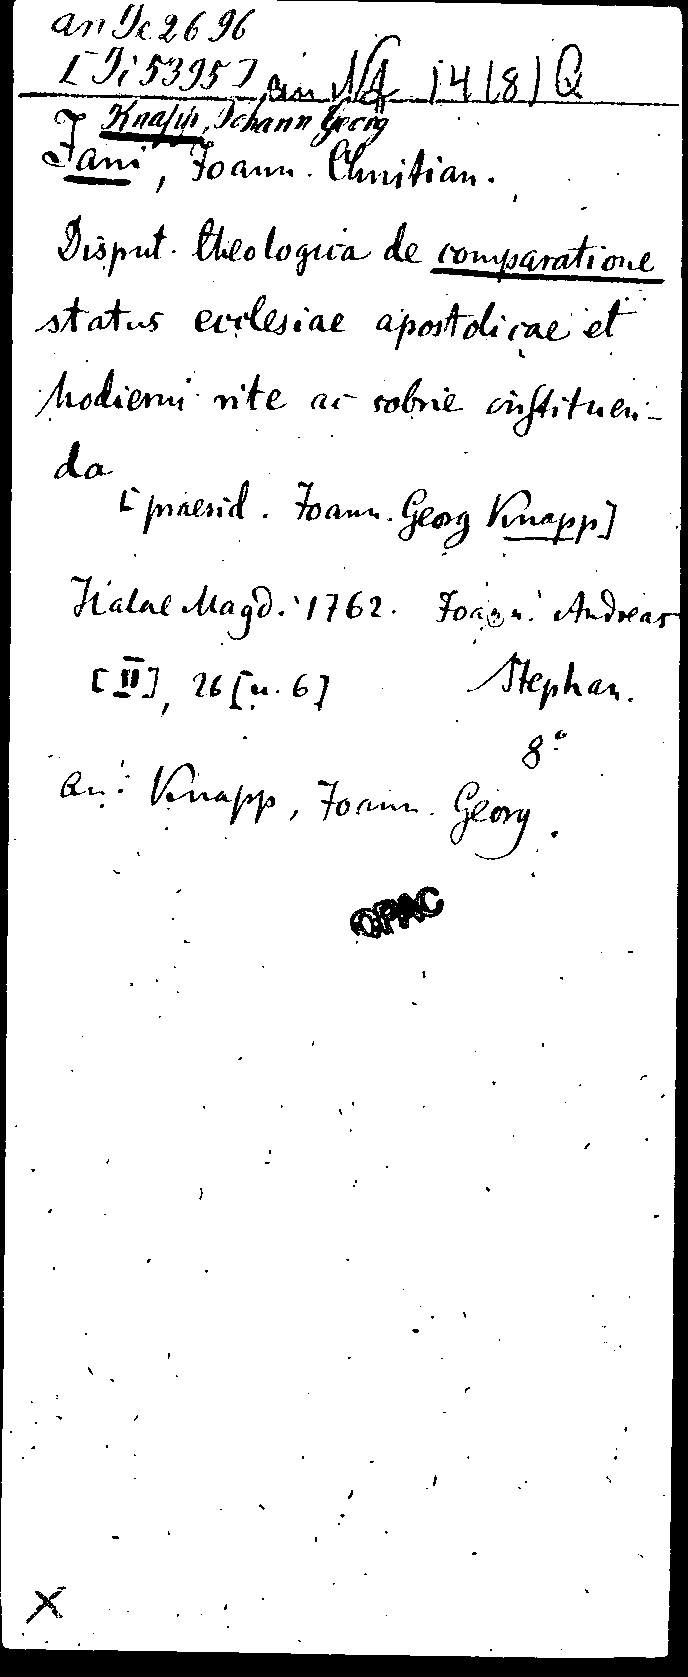 an Dc 2696
[Di 5395] an Nd 14 (8) Q
Knapp, Johann Georg
Jani, Joann. Christian.
Disput. theologica de comparatione
status ecclesiae apostolicae et
hodierni rite ac sobrie instituen-
da
[praesid. Joann. Georg Knapp]
Halae Magd. 1762. Joann. Andreas
[II], 26 [u. 6] Stephan.
8°
an: Knapp, Joann. Georg.
OPAC
X